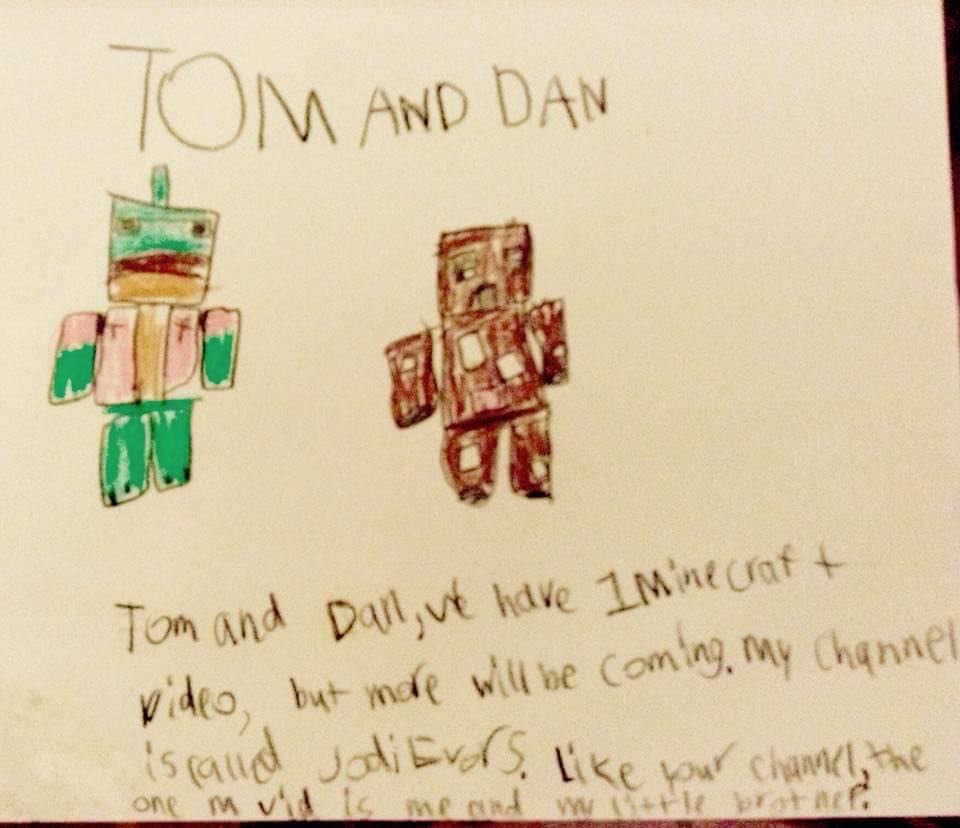 TOM AND DAN
Tom and Dan, we have 1 Minecraft
video, but more will be coming. My channel
is called JodiEvors. Like your channel, the
one m vid is me and my little brother.